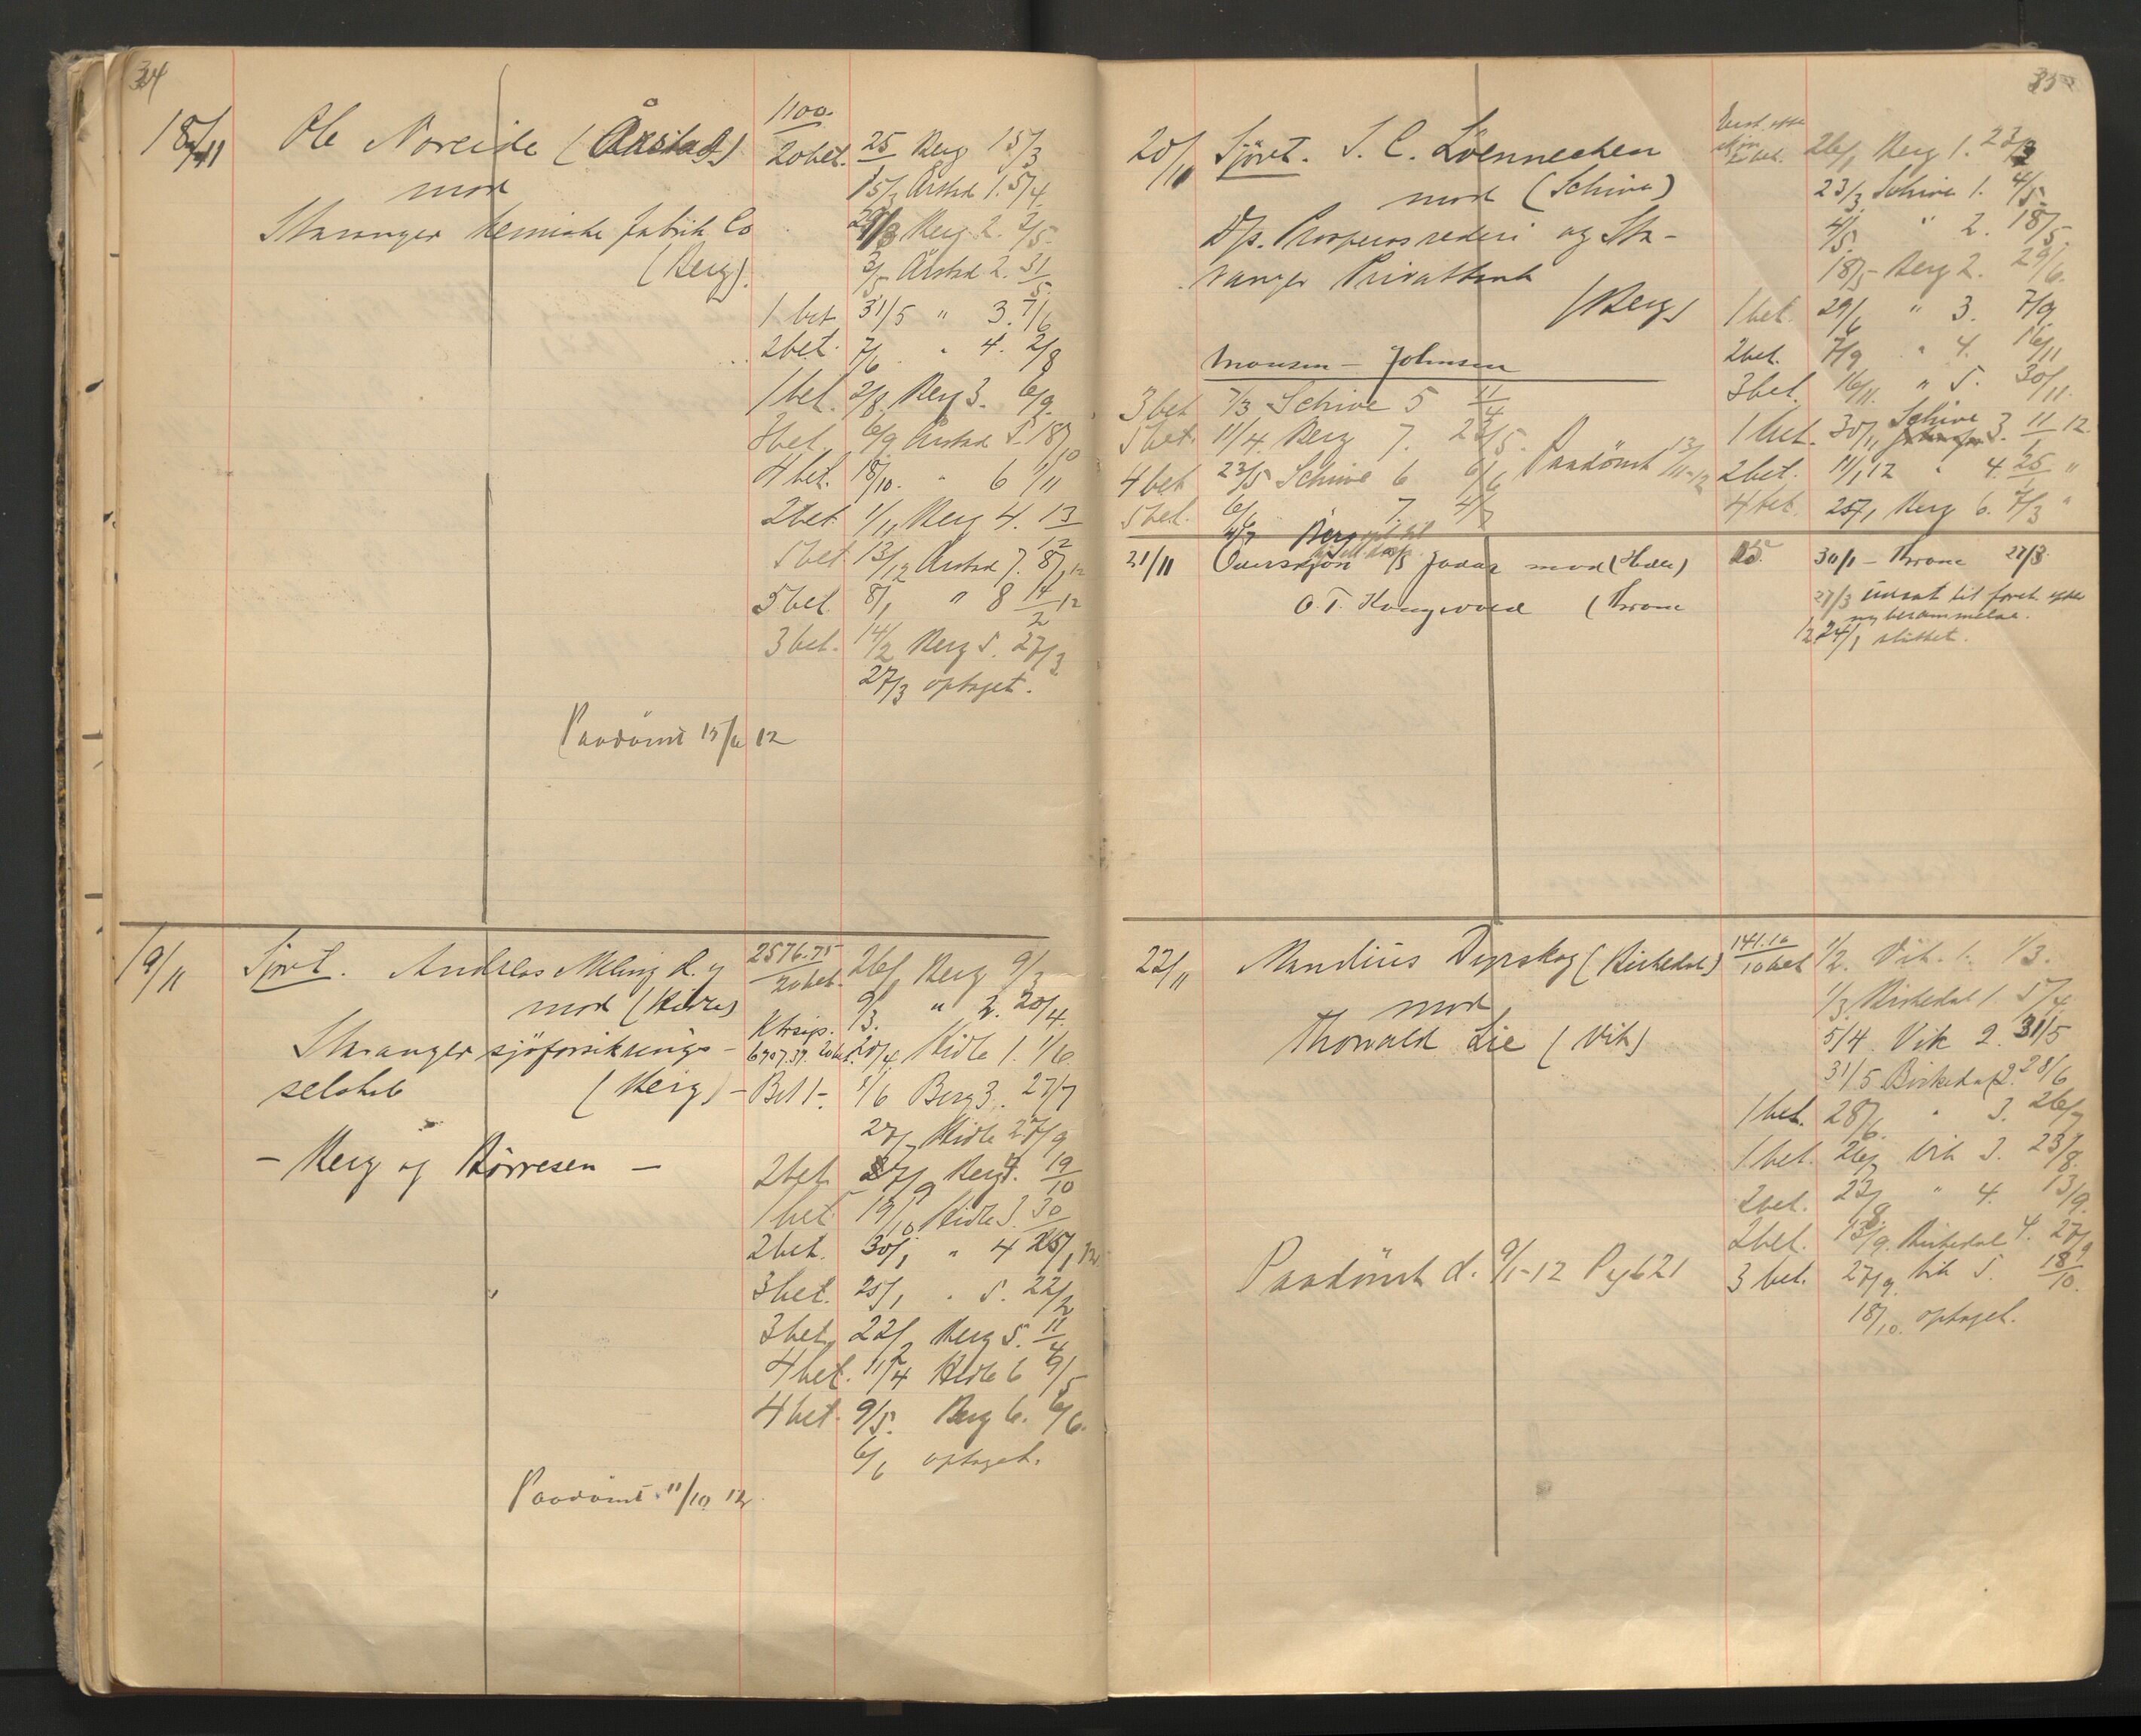 34
18/11 Ole Noreide (Årstad) 1100.
mod 20 bet. 25/1 Berg 15/3
15/3 Årstad 1. 5/4.
Stavanger kemiske fabrik Co Berg 2. 3/5.
(Berg). 3/5 Årstad 2. 31/5.
1 bet 31/5 " 3. 7/6
2 bet. 7/6 " 4. 2/8
1 bet. 2/8. Berg 3. 6/9.
3 bet. 6/9 Årstad 5. 18/10
4 bet. 18/10. " 6 1/11
2 bet 1/11 Berg 4. 13/12
5 bet 13/12 Årstad 7. 8/1 12
5 bet. 8/1 " 8 14/2 12
3 bet. 14/2 Berg 5. 27/3
27/3 optaget.
Paadömt 12
19/11 Sjöret. Andreas Meling d.y. 2576.75 26/1 Berg 9/3
mod (Hidle) 20 bet. 9/3. " 2. 20/4.
Stavanger sjöforsikrings- 6707.37. 20 bet. 20/4. Hidle 1. 1/6
selskab (Berg) - 1/6 Berg 3. 27/7
27/7 Hidle 27/9
- Berg og Börresen -
2 bet 27/9 Berg 4. 19/10
1 bet 19/10 Hidle 3. 30/
2 bet. 30/ " 4 25/1 12
3 bet. 25/1 " 5. 22/2
3 bet. 22/2 Berg 5. 11/4
4 bet. 11/4 Hidle 6 9/5
4 bet. 9/5. Berg 6. 6/6.
6/6 optaget.
Paadömt 11/10 12.
35
20/11 Sjöret. S. C. Löennechen 26/1 Berg 1. 23/3
mod (Schive) 23/3 Schive 1. 4/5.
D/s. Prosperos rederi og Sta- 4/5. " 2. 18/5.
vanger Privatbank 18/5 - Berg 2. 29/6.
(Berg) 1 bet. 29/6 " 3. 7/9
2 bet. 7/9 " 4. 16/11
Monsen - Johnsen
3 bet. 16/11. " 5. 30/11.
3 bet 7/3 Schive 5 11/4
1 bet. 30/11 Schive 3. 11/1 12.
5 bet. 11/4. Berg 7. 23/5. Paadömt 13/11-12
2 bet. 11/1 12 " 4. 25/1 "
4 bet 23/5 Schive 6 6/6
4 bet. 25/1 Berg 6. 7/3 "
5 bet. 6/6 7. 4/7
4/7 Berg
21/11 A/S Jadar mod (Hidle) 15. 30/1 - Throne 27/3.
O. T. Kongevold (Throne 27/3 udsat til foret. efter
ny berammelse.
12 24/1 sluttet.
22/11 Mandius Dyrskog (Birkedal) 141.16 1/2. Vik. 1. 1/3.
mod 10 bet 1/3. Birkedal 1. 5/4.
Thorvald Lie (Vik) 5/4 Vik 2. 31/5
31/5 Birkedal 2. 28/6
1 bet. 28/6. " 3. 26/7
1 bet. 26/7 Vik 3. 23/8.
2 bet. 23/8. " 4. 13/9.
2 bet. 13/9. Birkedal 4. 27/9
Paadömt d. 9/1-12 Pg 621 3 bet. 27/9. Vik 5. 18/10.
18/10. optaget.